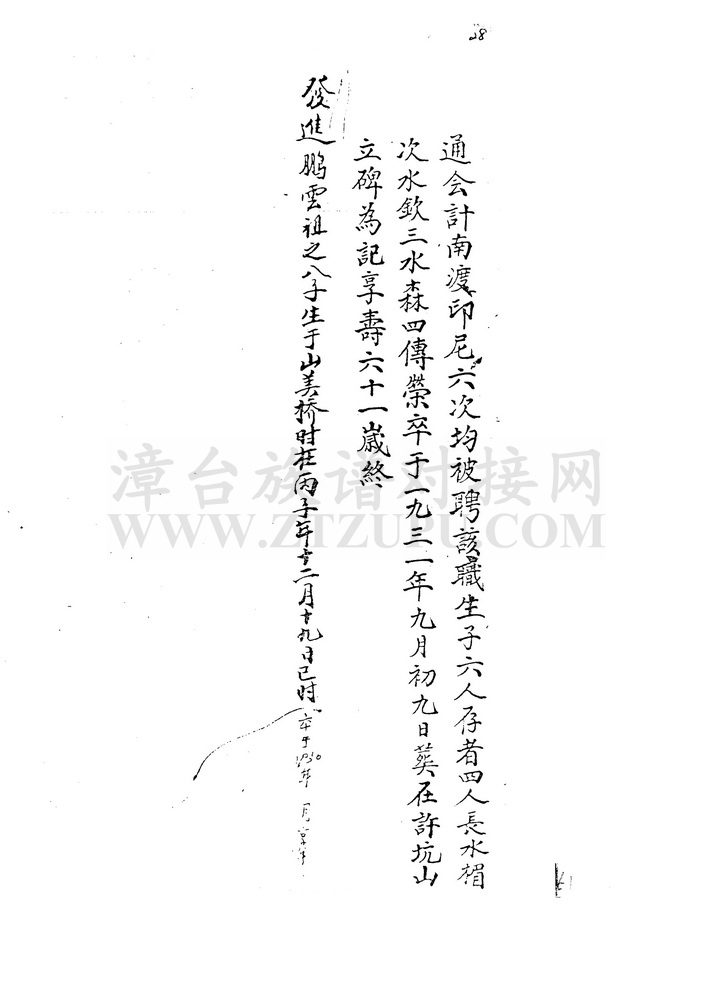 28
通会計南渡印尼六次均被聘該職生子六人存者四人長水楣
次水欽三水森四傳榮卒于一九三一年九月初九日葬在許坑山
立碑為記享壽六十一歲終
發進鵬雲祖之八子生于山美桥时在丙子年十二月十九日巳时
卒于1950年 月享年
漳台族谱对接网
WWW.ZTZUPU.COM